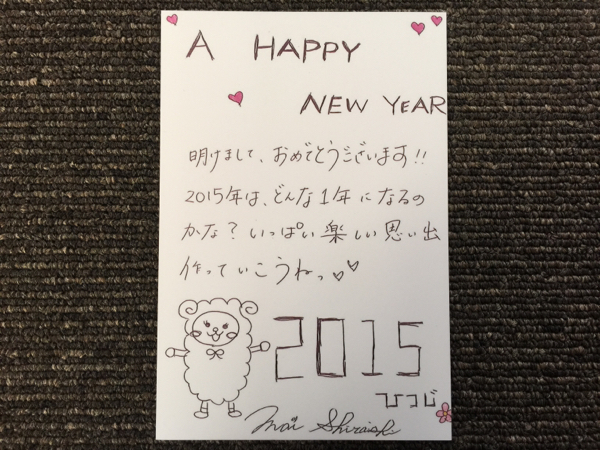 A HAPPY
NEW YEAR
明けまして、おめでとうございます!!
2015年は、どんな1年になるの
かな?いっぱい楽しい思い出
作っていこうねっ♡♡
2015
ひつじ
Mai Shiraishi